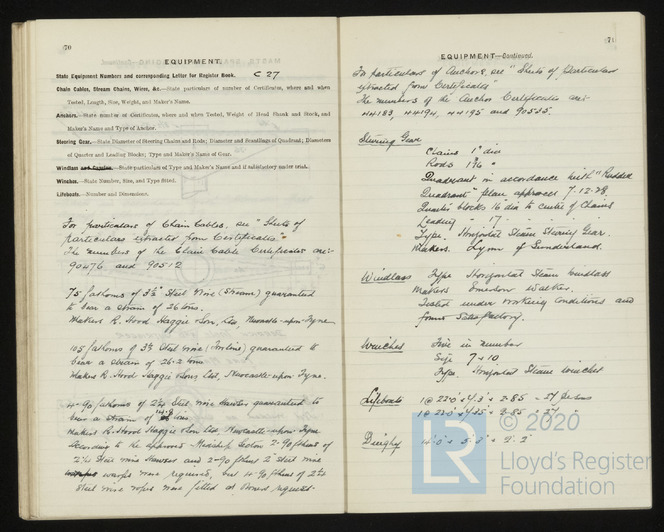 70
EQUIPMENT.
State Equipment Numbers and corresponding Letter for Register Book. C 27
Chain Cables, Stream Chains, Wires, &c.—State particulars of number of Certificates, where and when
Tested, Length, Size, Weight, and Maker's Name.
Anchors.—State number of Certificates, where and when Tested, Weight of Head Shank and Stock, and
Maker's Name and Type of Anchor.
Steering Gear.—State Diameter of Steering Chains and Rods; Diameter and Scantlings of Quadrant; Diameters
of Quarter and Leading Blocks; Type and Maker's Name of Gear.
Windlass and Capstan.—State particulars of Type and Maker's Name and if satisfactory under trial.
Winches.—State Number, Size, and Type fitted.
Lifeboats.—Number and Dimensions.
For particulars of Chain Cables, see "Sheets of
particulars extracted from Certificates".
The numbers of the Chain Cable Certificates are:-
90476 and 90512
75 fathoms of 3½" Steel Wire (Stream) guaranteed
to bear a strain of 26 tons.
Makers R. Hood Haggie & Son, Ltd, Newcastle-upon-Tyne
105 fathoms of 3½" Steel Wire (Towline) guaranteed to
bear a strain of 26.2 tons
Makers R. Hood Haggie & Sons Ltd, Newcastle upon Tyne.
4-90 fathoms of Steel Wire Hawser guaranteed to
bear a strain of 14.8 tons
Makers R. Hood Haggie & Son Ltd, Newcastle-upon-Tyne
According to the approved Midship Section 2-90 fathoms of
Steel wire Hawser and 2-90 fathoms 2" Steel wire
warps were required, but 4-90 fathoms of
Steel wire ropes were fitted at Owners request.
71
EQUIPMENT—Continued.
For particulars of Anchors, see "Sheets of Particulars
extracted from Certificates"
The numbers of the Anchor Certificates are:-
44183, 44194, 44195 and 90535.
Steering Gear
Chains 1" dia
Rods "
Quadrant in accordance with "Rudder
Quadrant" plan approved 7.12.28
Quarter blocks 16" dia to centre of Chains
Leading " 17 " " " "
Type. Horizontal Steam Steering Gear.
Makers. Lynn of Sunderland.
Windlass Type Horizontal Steam Windlass
Makers Emerson Walker.
Tested under working conditions and
found Satisfactory.
Winches Five in number
Size 7 x 10
Type Horizontal Steam winches
Lifeboats 1 @ 22.0 x x 2.85 = 
1 @ 22.0 x x 2.85 = 
Dinghy
© 2020
LR
Lloyd's Register
Foundation